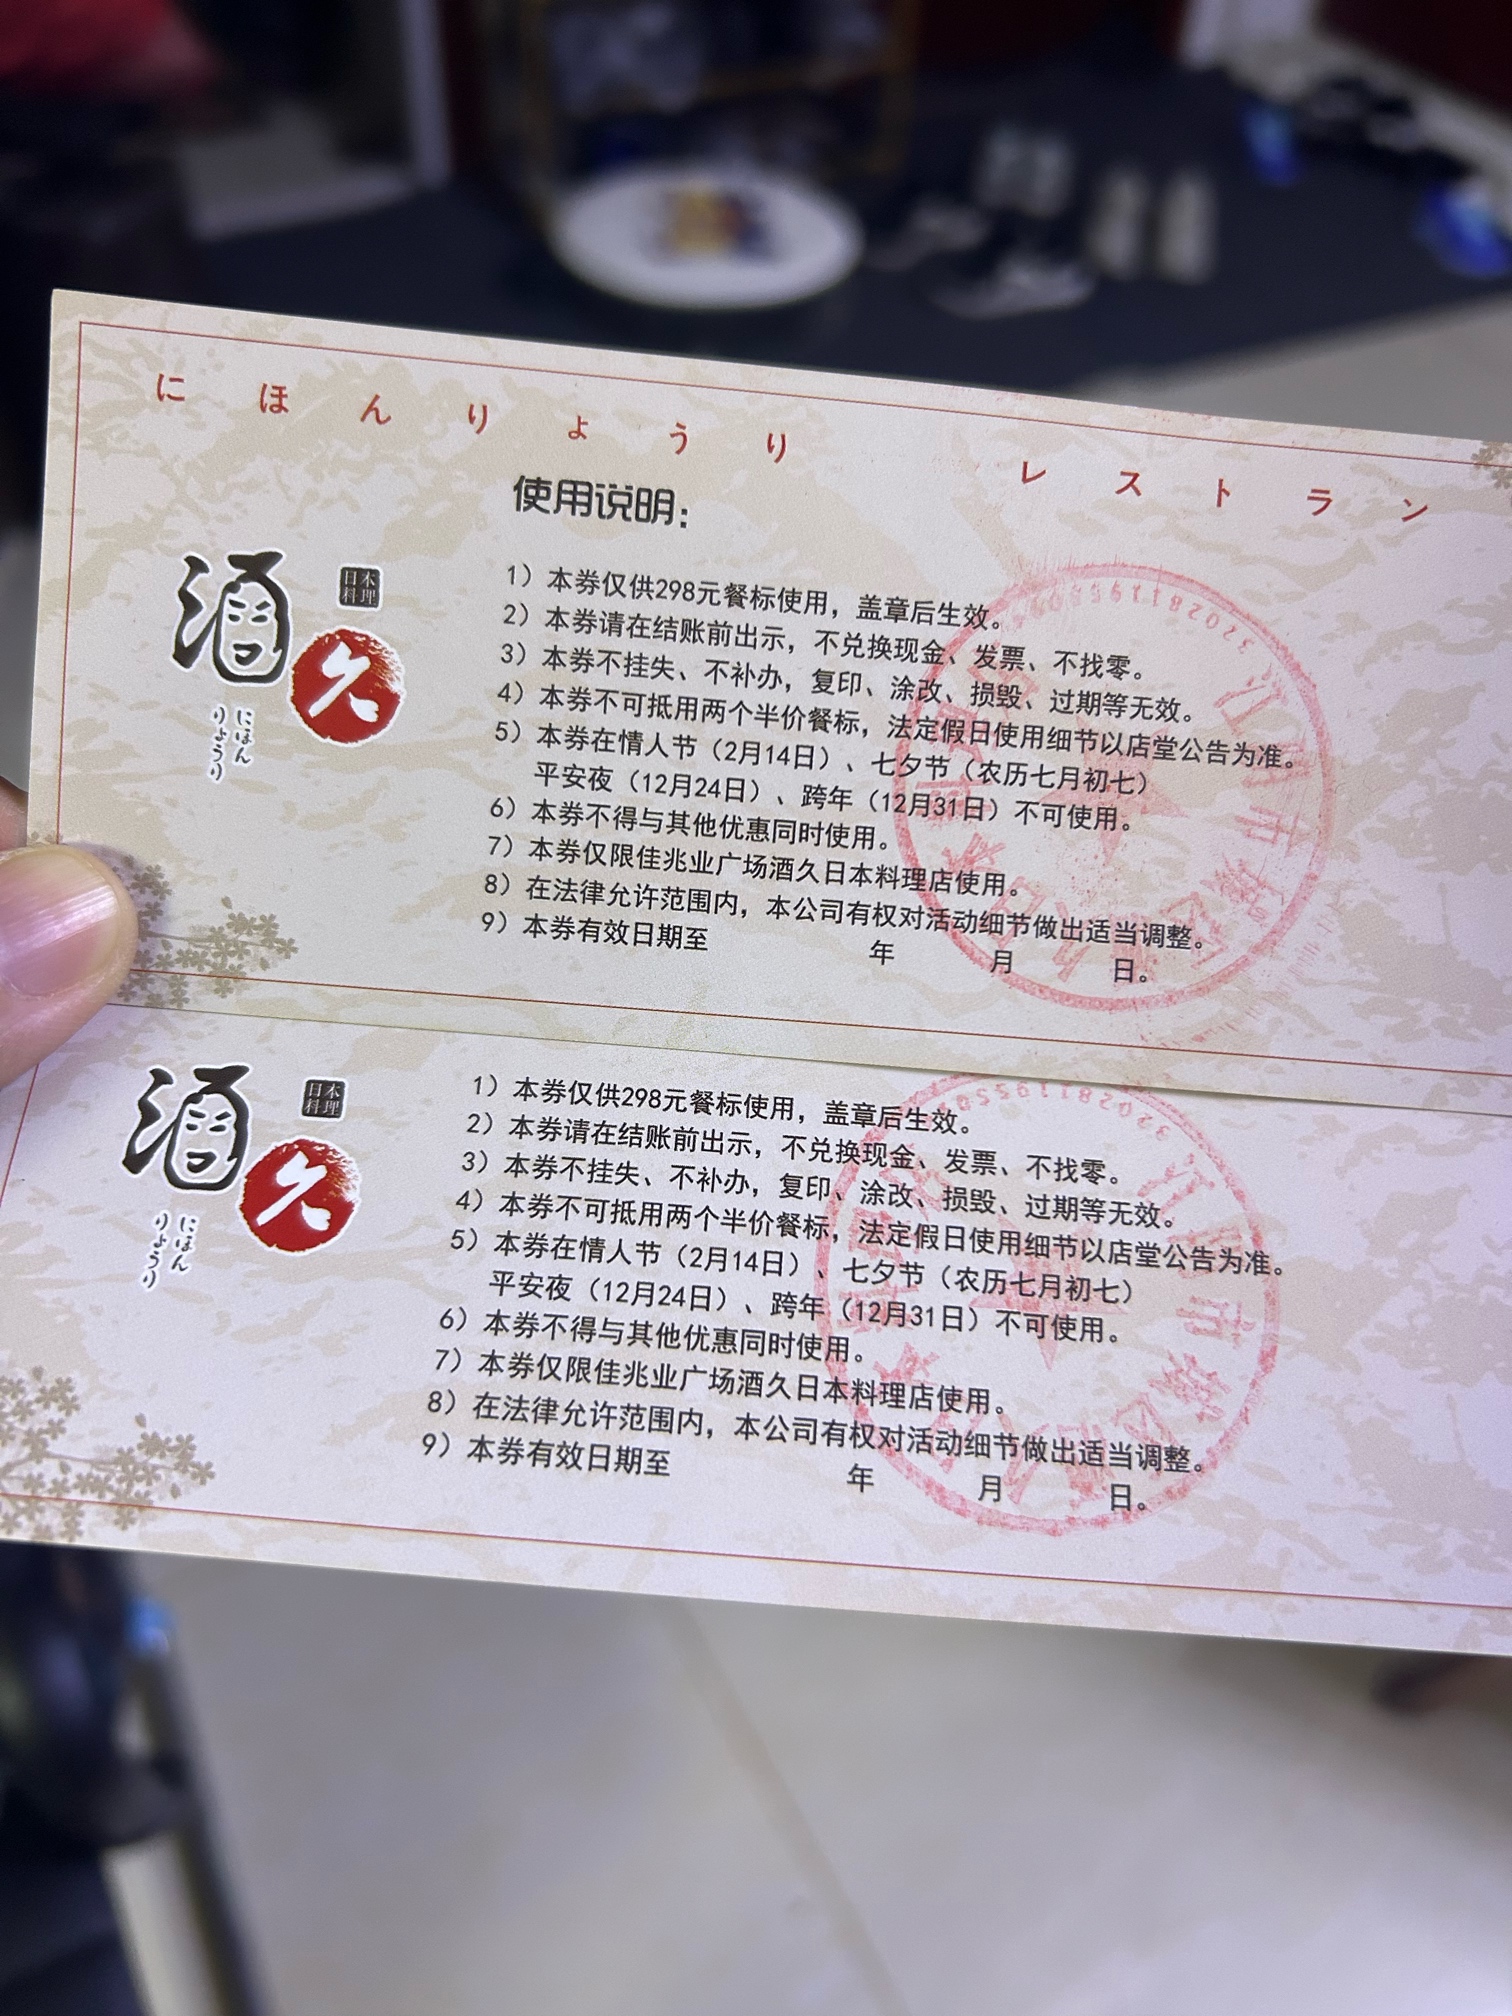 にほんりょうり レストラン
使用说明：
酒久
日本
料理
にほん
りょうり
1）本券仅供298元餐标使用，盖章后生效。
2）本券请在结账前出示，不兑换现金、发票、不找零。
3）本券不挂失、不补办，复印、涂改、损毁、过期等无效。
4）本券不可抵用两个半价餐标，法定假日使用细节以店堂公告为准。
5）本券在情人节（2月14日）、七夕节（农历七月初七）
平安夜（12月24日）、跨年（12月31日）不可使用。
6）本券不得与其他优惠同时使用。
7）本券仅限佳兆业广场酒久日本料理店使用。
8）在法律允许范围内，本公司有权对活动细节做出适当调整。
9）本券有效日期至 年 月 日。
酒久
日本
料理
にほん
りょうり
1）本券仅供298元餐标使用，盖章后生效。
2）本券请在结账前出示，不兑换现金、发票、不找零。
3）本券不挂失、不补办，复印、涂改、损毁、过期等无效。
4）本券不可抵用两个半价餐标，法定假日使用细节以店堂公告为准。
5）本券在情人节（2月14日）、七夕节（农历七月初七）
平安夜（12月24日）、跨年（12月31日）不可使用。
6）本券不得与其他优惠同时使用。
7）本券仅限佳兆业广场酒久日本料理店使用。
8）在法律允许范围内，本公司有权对活动细节做出适当调整。
9）本券有效日期至 年 月 日。